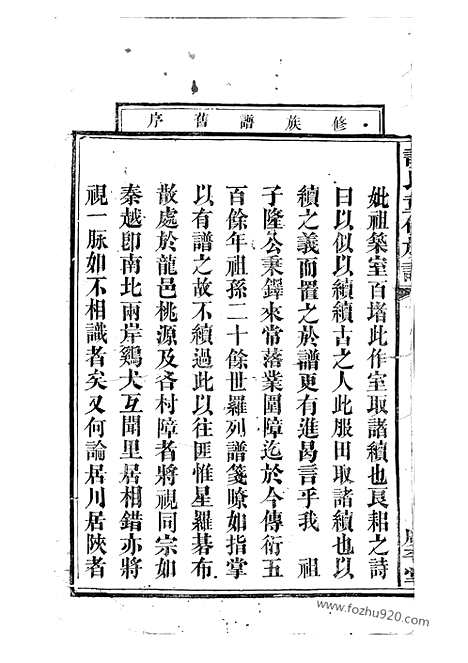 修族譜舊序
妣祖築室百堵此作室取諸續也良耜之詩
曰以似以續續古之人此服田取諸續也以
續之義而置之於譜更有逛曷言乎我　祖
子隆公秉鐸來常落業圍障迄於今傳衍五
百餘年祖孫二十餘世羅列譜箋瞭如指掌
以有譜之故不續過此以往匪惟星羅碁布
散處於龍邑桃源及各村障者將視同宗如
秦越卽南北兩岸鷄犬互聞里居相錯亦將
視一脉如不相識者矣又何論居川居陝者
www.fozhu920.com